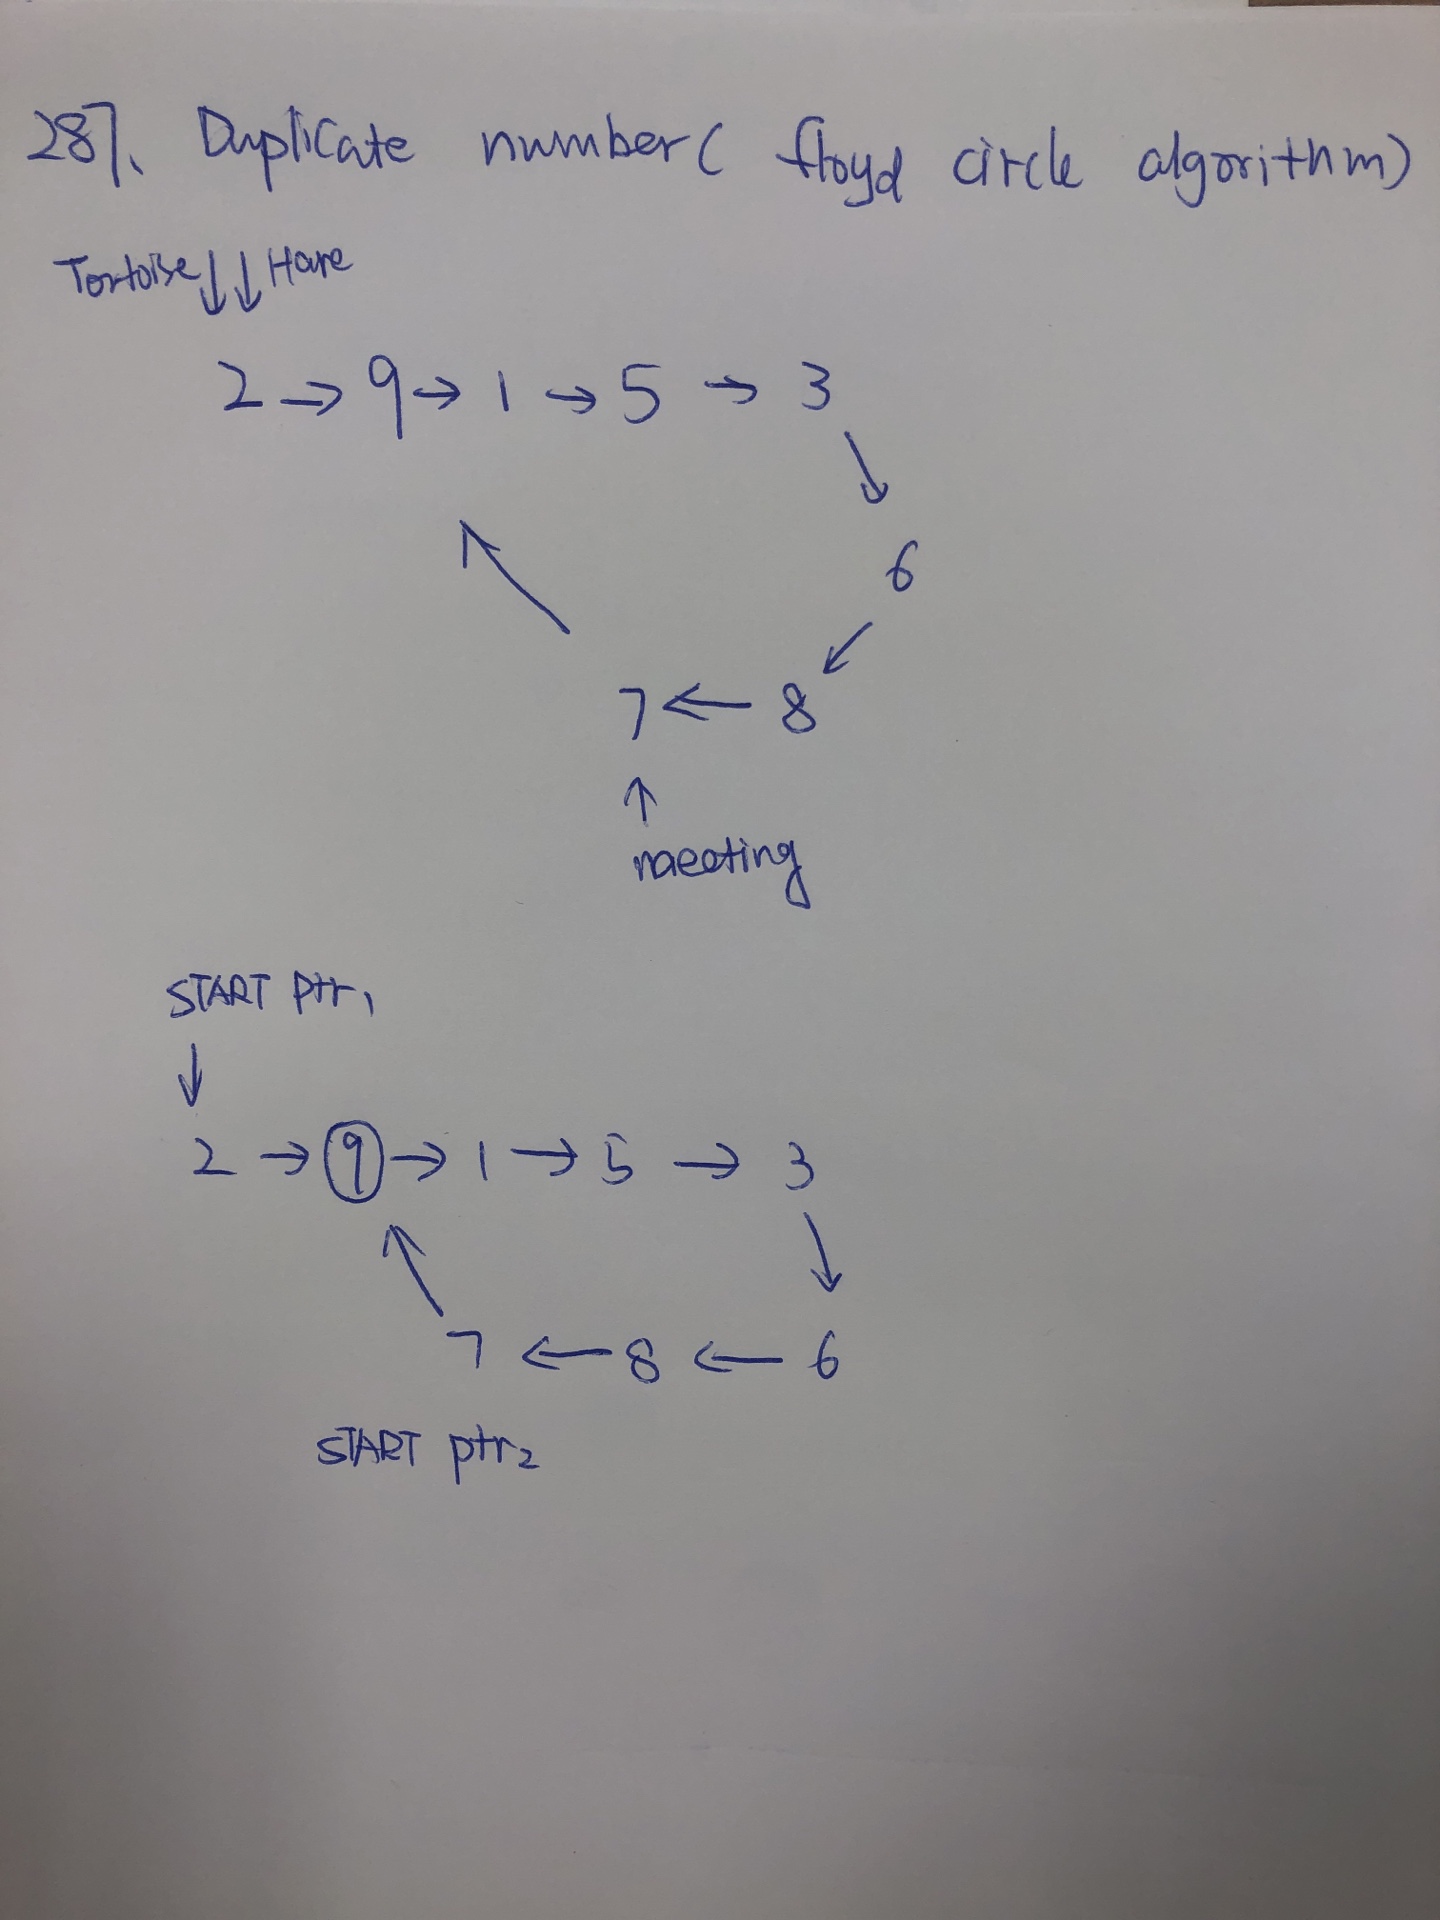 287. Duplicate number ( floyd circle algorithm)
Tortoise ↓↓ Hare
2 → 9 → 1 → 5 → 3
6
7 ← 8
meeting
START ptr1
2 → 9 → 1 → 5 → 3
7 ← 8 ← 6
START ptr2